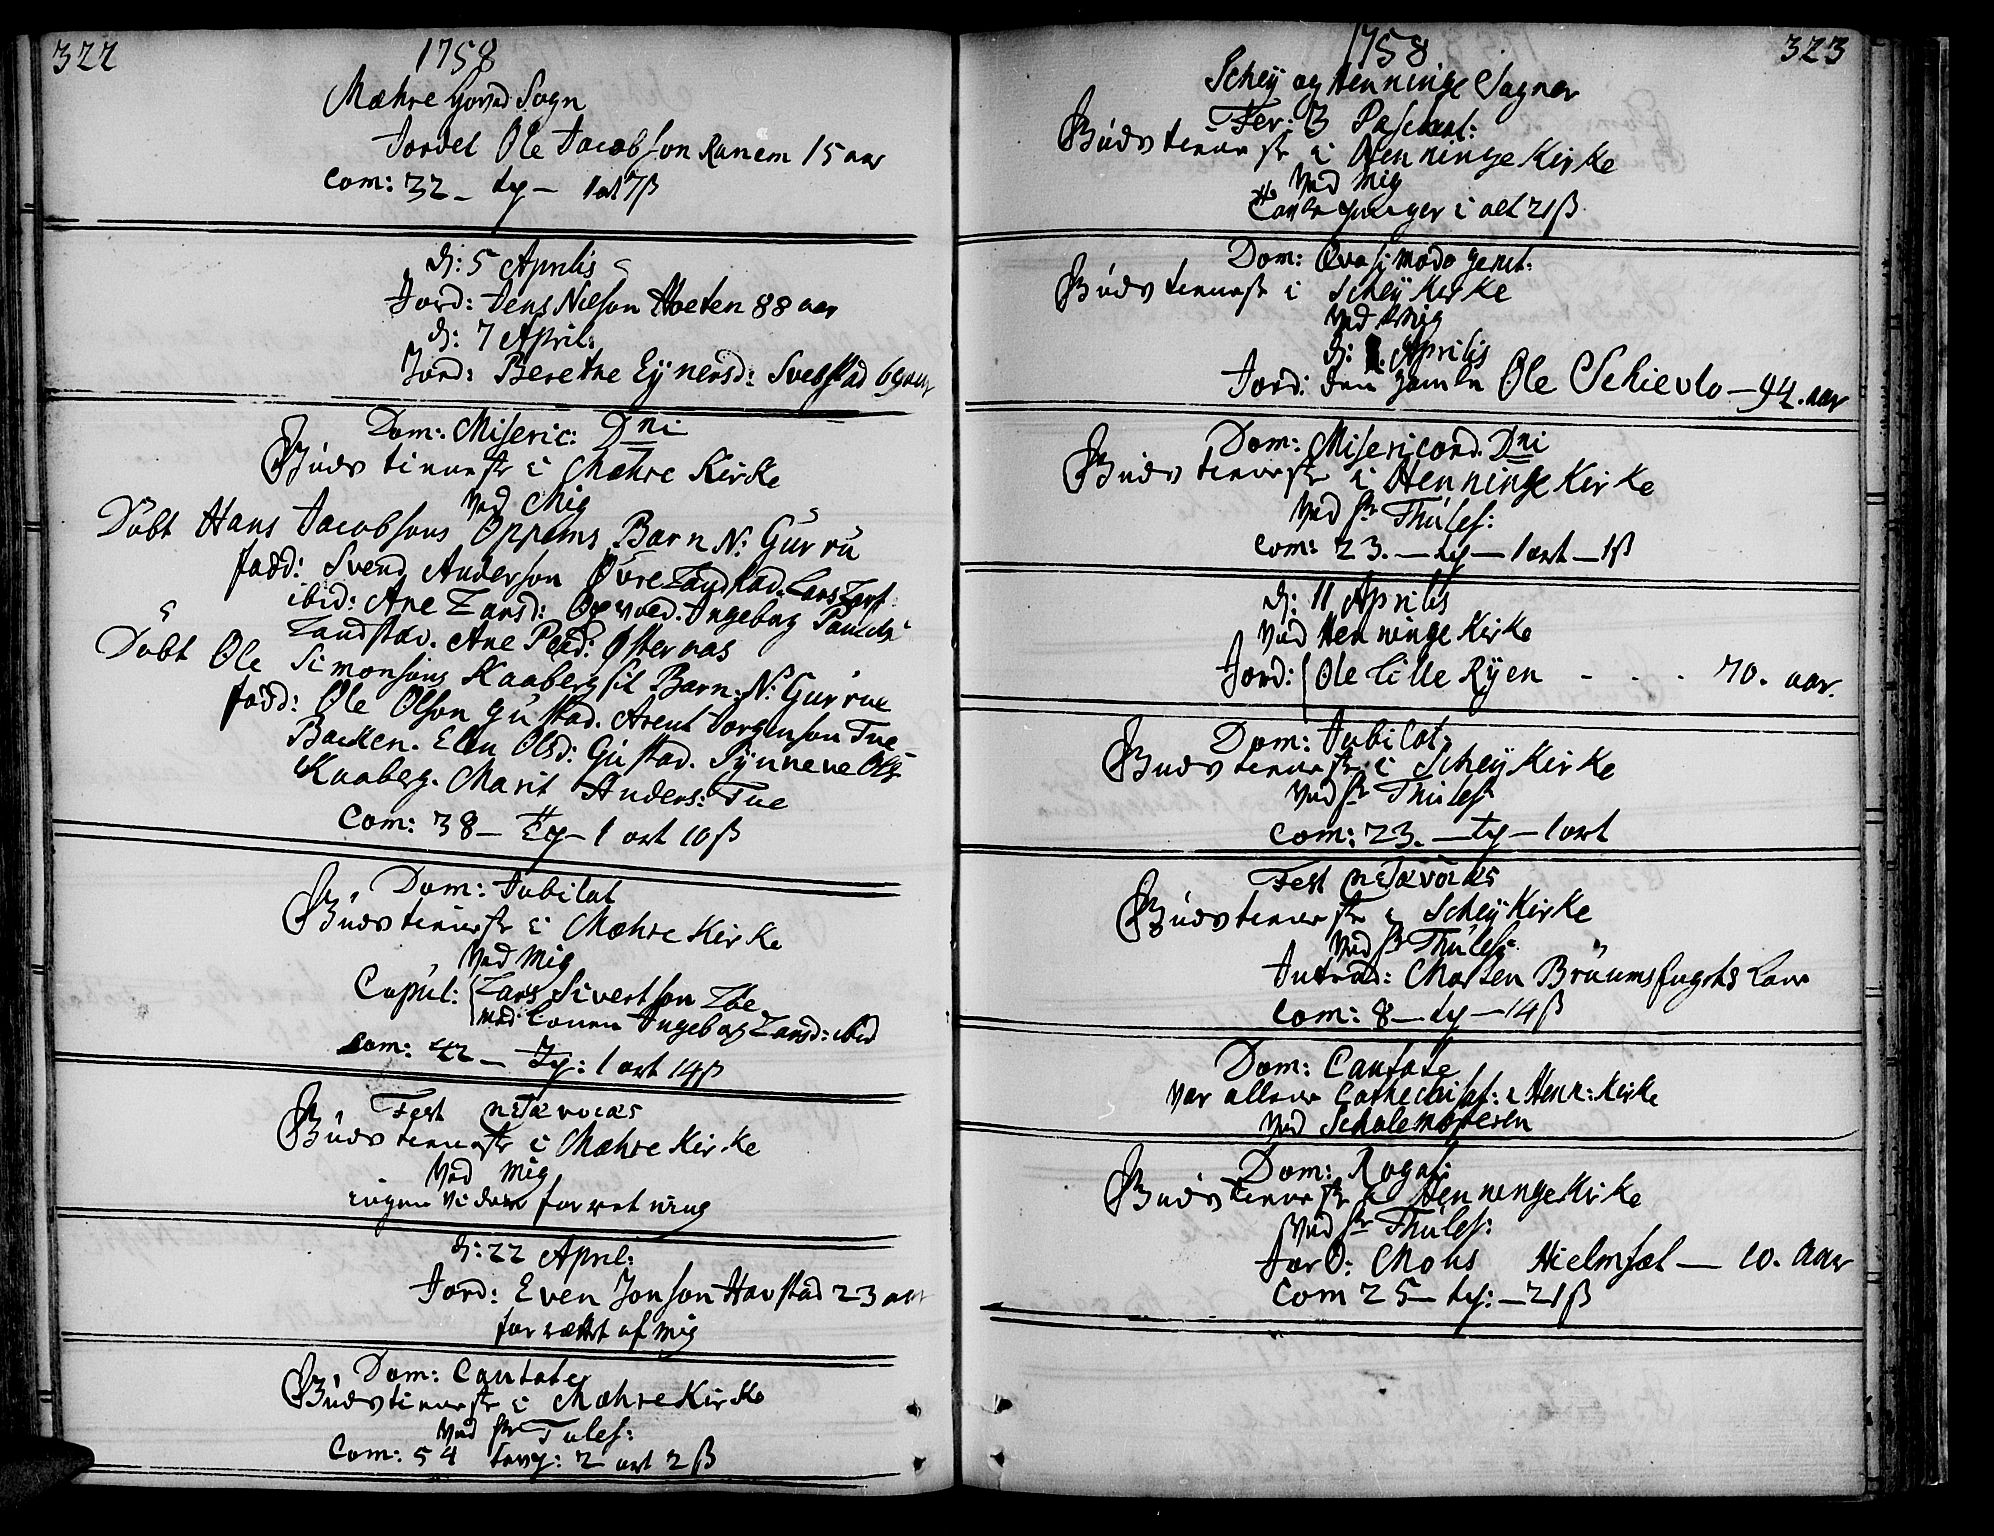 322
1758
Mæhre Hoved Sogn
Jordet Ole Jacobsson Ranem 15 aar
Com: 32 – ty – 1 ort 7 ß
d: 5 Aprilis
Jord: Jens Nilson Hoeten 88 aar
d: 7 April:
Jord: Beretne Eÿnersd: Svebstad 69 aar
Dom: Miseric: Dni
Gudstieneste i Mæhre Kirke
Ved Mig
Döbt Hans Jacobsons Oppems Barn N: Gurru
fadd: Svend Anderson Øvre Landstad. Lars Lars:
ibid: Ane Larsd: Opvold. Ingeborg
Landstad. Ane Pedd: Østernas
Döbt Ole Simonsons Kaabergsil Barn: N: Gurrue
fadd: Ole Olson Gustad. Arent Jørgenson Tue
Backen. Elen Olsd: Gustad. Synneve Ols:
Kaaberg. Marit Anders: Tue
Com: 38 – Ty – 1 ort 10 ß
Dom: Jubilat
Gudstieneste i Mæhre Kirke
Ved Mig
Copul: Lars Sivertson Lœ
med Konen Ingeborg Larsd: ibid
Com: 42 – Ty: 1 ort 14 ß
Fest μετανοιας
Gudstieneste i Mæhre Kirke
Ved Mig
ingen videre forretning
d: 22 April:
Jord: Even Jonson Havstad 23 aar
forrettet af Mig
Dom: Cantate
Gudstieneste i Mæhre Kirke
Ved Hr Tules:
Com: 54 Tavy: 2 ort 2 ß
1758
323
Scheÿ og Henninge Sogner
Fer: 3 Paschat:
Gudstieneste i Henninge Kirke
Ved Mig
i alt 21 ß
Dom: Qvasimodo genit:
Gudstieneste i Scheÿ Kirke
Ved Mig
d: Aprilis
Jord: den gamle Ole Schievlo – 94. aar
Dom: Misericord. Dni
Gudstieneste i Henninge Kirke
Ved Hr Thules:
Com: 23. – ty – 1 ort – 1 ß
d: 11 Aprilis
Ved Henninge Kirke
Jord: Ole Lille Rÿen - . . . 70. aar.
Dom: Jubilat:
Gudstieneste i Scheÿ Kirke
Ved Hr Thules
Com: 23. – Ty – 1 ort
Fest μετανοιας
Gudstieneste i Scheÿ Kirke
Ved Hr Thules:
Introd: Morten
Com: 8 – ty – 14 ß
Dom: Cantate
Var allene Cathechisat: i Henn: Kirke
Ved Scholemesteren
Dom: Rogat:
Gudstieneste i Henninge Kirke
Ved Hr Thules:
Jord: Mons Hielmsæt – 10. Aar
Com 25 – ty: – 21 ß